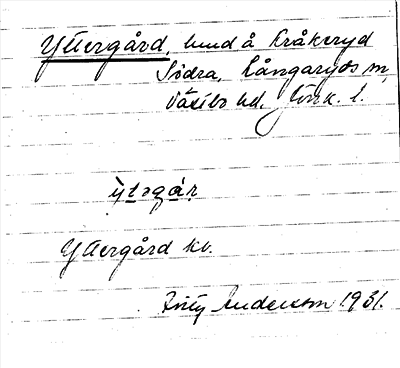 Yttergård, hmd å Kråkeryd
Södra, Långaryds sn,
Västbo hd. Jönk. l.
ỳtəgár
Yttergård kv.
Fritz Anderson 1931.